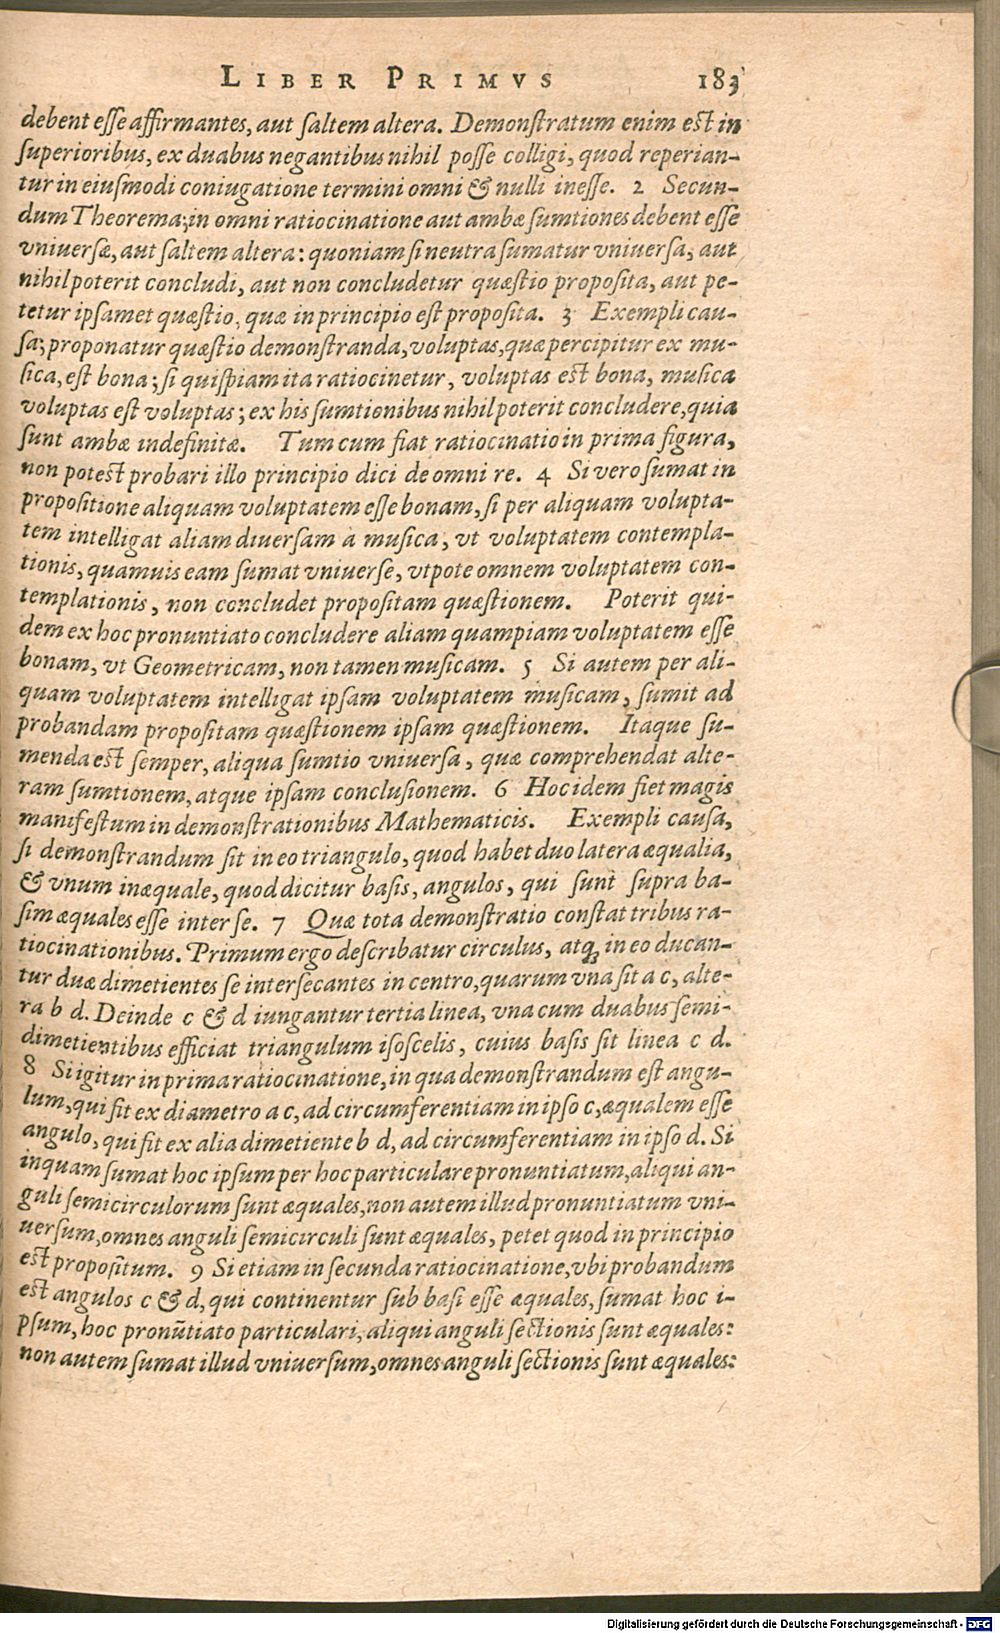 LIBER PRIMVS 183
debent esse affirmantes, aut saltem altera. Demonstratum enim est in
superioribus, ex duabus negantibus nihil posse colligi, quod reperian-
tur in eiusmodi coniugatione termini omni & nulli inesse. 2 Secun-
dum Theorema; in omni ratiocinatione aut ambæ sumtiones debent esse
vniuersæ, aut saltem altera: quoniam si neutra sumatur vniuersa, aut
nihil poterit concludi, aut non concludetur quæstio proposita, aut pe-
tetur ipsamet quæstio, quæ in principio est proposita. 3 Exempli cau-
sa; proponatur quæstio demonstranda, voluptas, quæ percipitur ex mu-
sica, est bona; si quispiam ita ratiocinetur, voluptas est bona, musica
voluptas est voluptas; ex his sumtionibus nihil poterit concludere, quia
sunt ambæ indefinitæ. Tum cum fiat ratiocinatio in prima figura,
non potest probari illo principio dici de omni re. 4 Si vero sumat in
propositione aliquam voluptatem esse bonam, si per aliquam volupta-
tem intelligat aliam diuersam à musica, vt voluptatem contempla-
tionis, quamuis eam sumat vniuerse, vtpote omnem voluptatem con-
templationis, non concludet propositam quæstionem. Poterit qui-
dem ex hoc pronuntiato concludere aliam quampiam voluptatem esse
bonam, vt Geometricam, non tamen musicam. 5 Si autem per ali-
quam voluptatem intelligat ipsam voluptatem musicam, sumit ad
probandam propositam quæstionem ipsam quæstionem. Itaque su-
menda est semper, aliqua sumtio vniuersa, quæ comprehendat alte-
ram sumtionem, atque ipsam conclusionem. 6 Hoc idem fiet magis
manifestum in demonstrationibus Mathematicis. Exempli causa,
si demonstrandum sit in eo triangulo, quod habet duo latera æqualia,
& vnum inæquale, quod dicitur basis, angulos, qui sunt supra ba-
sim æquales esse inter se. 7 Quæ tota demonstratio constat tribus ra-
tiocinationibus. Primum ergo describatur circulus, atq; in eo ducan-
tur duæ dimetientes se intersecantes in centro, quarum vna sit a c, alte-
ra b d. Deinde c & d iungantur tertia linea, vna cum duabus semi-
dimetientibus efficiat triangulum isoscelis, cuius basis sit linea c d.
8 Si igitur in prima ratiocinatione, in qua demonstrandum est angu-
lum, qui fit ex diametro a c, ad circumferentiam in ipso c, æqualem esse
angulo, qui fit ex alia dimetiente b d, ad circumferentiam in ipso d. Si
inquam sumat hoc ipsum per hoc particulare pronuntiatum, aliqui an-
guli semicirculorum sunt æquales, non autem illud pronuntiatum vni-
uersum, omnes anguli semicirculi sunt æquales, petet quod in principio
est propositum. 9 Si etiam in secunda ratiocinatione, vbi probandum
est angulos c & d, qui continentur sub basi esse æquales, sumat hoc i-
psum, hoc pronũtiato particulari, aliqui anguli sectionis sunt æquales:
non autem sumat illud vniuersum, omnes anguli sectionis sunt æquales:
Digitalisierung gefördert durch die Deutsche Forschungsgemeinschaft - DFG